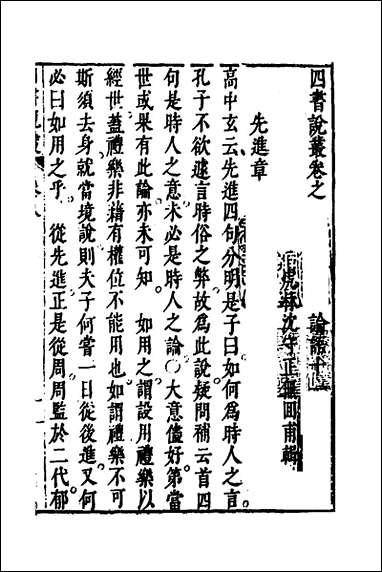 四書說叢卷之
論語十
虎林沈守正無回甫輯
先進章
高中玄云先進四句分明是子曰如何爲時人之言
孔子不欲遽言時俗之弊故爲此說疑問補云首四
句是時人之意未必是時人之論○大意儘好第當
世或果有此論亦未可知。如用之謂設用禮樂以
經世蓋禮樂非藉有權位不能用也如謂禮樂不可
斯須去身就當境說則夫子何嘗一日從後進又何
必曰如用之乎。從先進正是從周周監於二代郁